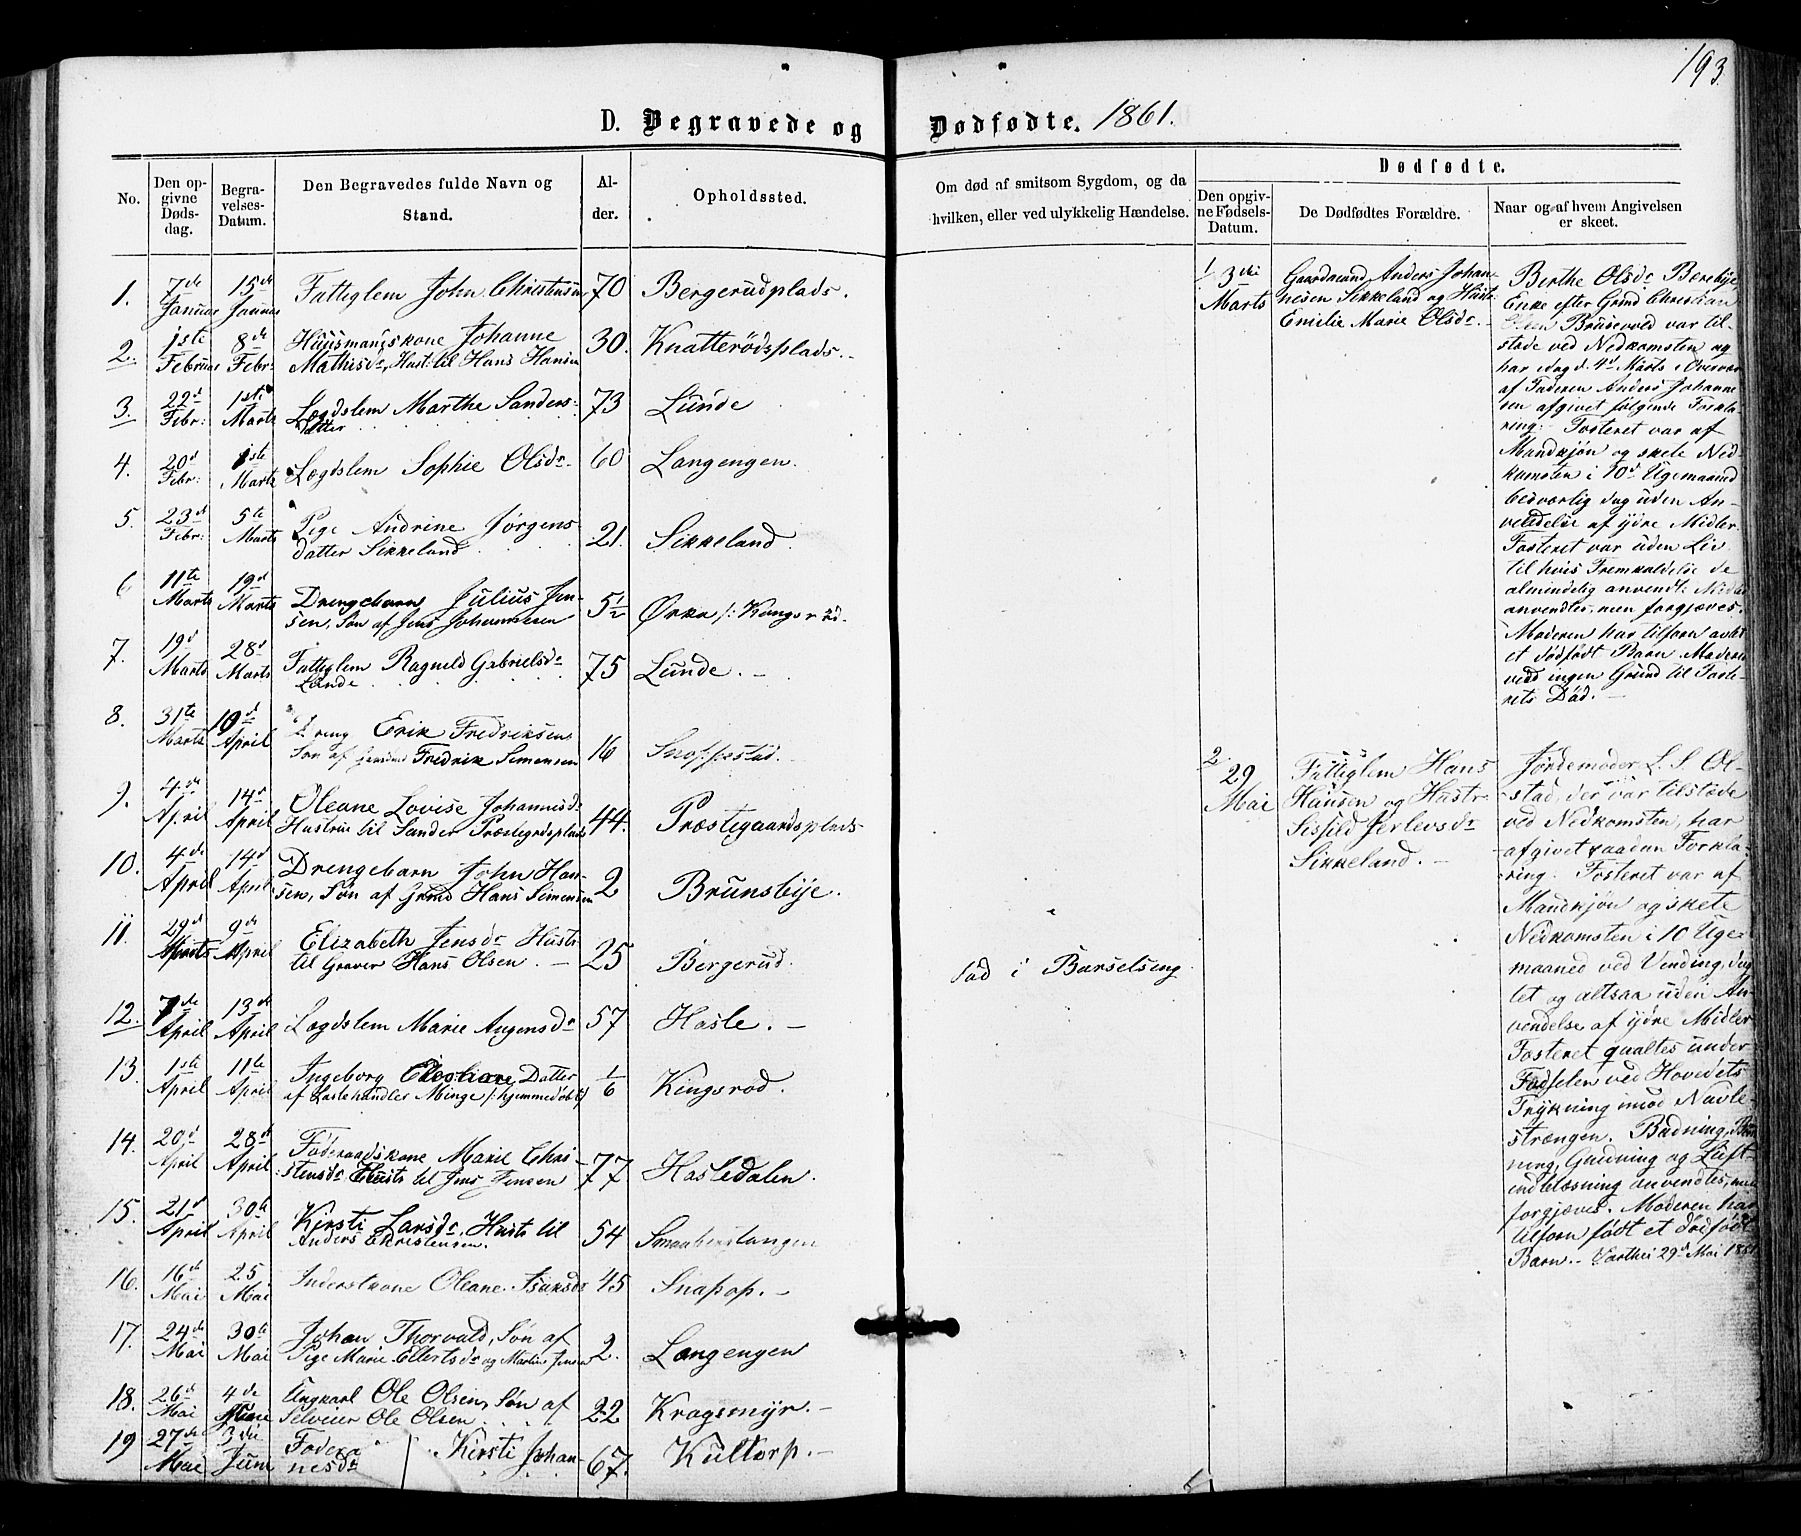 193.
D. Begravede og Dødfødte. 1861.
No.
Den opgivne Dødsdag.
Begravelses-Datum.
Den Begravedes fulde Navn og Stand.
Alder.
Opholdssted.
Om død af smitsom Sygdom, og da hvilken, eller ved ulykkelig Hændelse.
Dødfødte.
Den opgivne Fødsels-Datum.
De Dødfødtes Forældre.
Naar og af hvem Angivelsen er skeet.
1. 7de Januar 15de Januar Fattiglem John Christensen 70 Bergerudplads.
2. 1ste Februar 8de Febr: Huusmandskone Johanne
Mathisdr, Hust: til Hans Hansen 30. Knatterødsplads.
3. 22d Febr: 1ste Marts Lægdslem Marthe Sanders-
datter 73 Lunde
4. 20d Febr: 1ste Marts Lægdslem Sophie Olsdr. 60 Langengen.
5. 23d Febr: 5te Marts Pige Andrine Jørgens
datter Sikkeland 21. Sikkeland.
6 11te Marts 19d Marts Drengebarn Julius Jen-
sen, Søn af Jens Johannesen 5½ Ørkn /: Kongsrød.
7. 19d Marts 28d Marts Fattiglem Ragnild Gabrielsdr
Lunde 75 Lunde.
8. 31te Marts 10d April Dreng Erik Fredriksen
Søn af Fredrik Simensen 16 Snoppestad.
9. 4de April 14d April Oleane Lovise Johannisdr
Hustru til Sander Præstegrdsplads 44. Præstegaardsplads
10. 4de April 14d April Drengebarn John Han-
sen, Søn af Grmd Hans Simensen 2 Brunsbye.
11. 29d Marts 9de April Elizabeth Jensdr Hustr
til Graver Hans Olsen. 25 Bergerud. død i Barselseng
12. 7de April 13de April Lægdslem Marie Augensdr 57 Hasle.
13. 1ste April 11te April Ingeborg Datter
af Lastehandler Minge /: hjemmedøbt 1/6 Kingsrod.
14. 20d April 28d April Føderaadskone Marie Chri-
stensdr Hustr til Jens Jensen 77 Hasledalen.
15. 21d April 30te April Kirsti Larsdr, Hustr til
Anders Christensen. 54 Smaabergtangen
16. 16d Mai 25 Mai Inderstkone Oleane Isaksdr 45 Snapop.
17. 24de Mai 30te Mai Johan Thorvald, Søn af
Pige Marie Ellertsdr og Martin Jensen 2. Langengen
18. 26d Mai 4de Ungkarl Ole Olsen, Søn af
Selveier Ole Olsen 22 Kragsmyr.
19 27de Mai 3die Juni Kirsti Johan-
nesdr 67. Kultorp.
1 3die Marts
Gaardmand Anders Johan-
nesen Sikkeland og Hustr
Emilie Marie Olsdr.
Berthe Olsdr Berebye,
Enke efter Grmd Christian
Olsen Brusevold var til-
stede ved Nedkomsten og
har idag d. 4d Marts i Overvær
af Faderen Anders Johanne
sen afgivet følgende Forkla-
ring: Fosteret var af
Mandkjøn og skete Ned-
komsten i 10d Ugemaaned
bedværlig dog uden An-
vendelse af ydre Midler.
Fosteret var uden Liv
til hvis Fremkaldelse de
almindelig anvendt: Midler
anvendtes, men forgjæves.
Moderen har tilforn avlet
et dødfødt Barn. Moderen
vedd ingen Grund til Foste-
rets Død.
2. 29 Mai
Fattiglem Hans
Hansen og Hustr
Sissild Perlevsdr
Sikkeland.
Jordemoder L. S. Ol-
stad, der var tilstede
ved Nedkomsten, har
afgivet saadan Forkla-
ring: Fosteret var af
Mandkjøn og skete
Nedkomsten i 10 Uge-
maaned ved Vending,
let og altsaa uden An-
vendelse af ydre Midler
Fosteret qualtes under
Fødselen ved Hovedets
Trykning imod Navle-
strængen. Badning,
ning, Gnidning og Luft-
indblæsning anvendtes, men
forgjæves. Moderen har
tilforn født et dødfødt
Barn. 29d Mai 1861